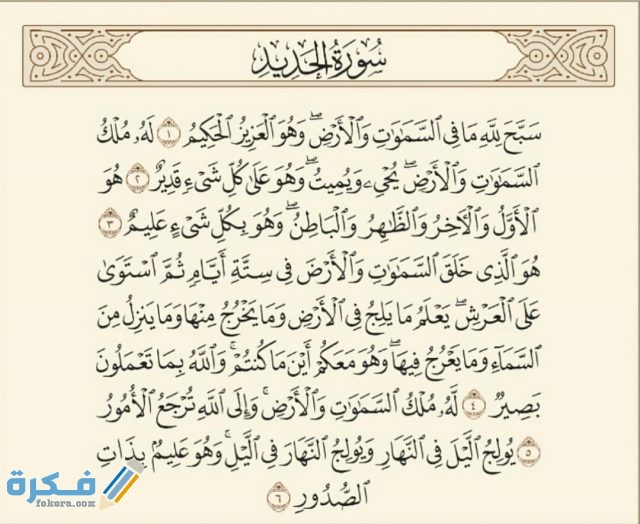 سُورَةُ الحَدِيدِ
سَبَّحَ لِلَّهِ مَا فِي ٱلسَّمَٰوَٰتِ وَٱلۡأَرۡضِۖ وَهُوَ ٱلۡعَزِيزُ ٱلۡحَكِيمُ ١ لَهُۥ مُلۡكُ
ٱلسَّمَٰوَٰتِ وَٱلۡأَرۡضِۖ يُحۡيِۦ وَيُمِيتُۖ وَهُوَ عَلَىٰ كُلِّ شَيۡءٖ قَدِيرٌ ٢ هُوَ
ٱلۡأَوَّلُ وَٱلۡأٓخِرُ وَٱلظَّٰهِرُ وَٱلۡبَاطِنُۖ وَهُوَ بِكُلِّ شَيۡءٍ عَلِيمٌ ٣
هُوَ ٱلَّذِي خَلَقَ ٱلسَّمَٰوَٰتِ وَٱلۡأَرۡضَ فِي سِتَّةِ أَيَّامٖ ثُمَّ ٱسۡتَوَىٰ
عَلَى ٱلۡعَرۡشِۖ يَعۡلَمُ مَا يَلِجُ فِي ٱلۡأَرۡضِ وَمَا يَخۡرُجُ مِنۡهَا وَمَا يَنزِلُ مِنَ
ٱلسَّمَآءِ وَمَا يَعۡرُجُ فِيهَاۖ وَهُوَ مَعَكُمۡ أَيۡنَ مَا كُنتُمۡۚ وَٱللَّهُ بِمَا تَعۡمَلُونَ
بَصِيرٞ ٤ لَّهُۥ مُلۡكُ ٱلسَّمَٰوَٰتِ وَٱلۡأَرۡضِۚ وَإِلَى ٱللَّهِ تُرۡجَعُ ٱلۡأُمُورُ
٥ يُولِجُ ٱلَّيۡلَ فِي ٱلنَّهَارِ وَيُولِجُ ٱلنَّهَارَ فِي ٱلَّيۡلِۚ وَهُوَ عَلِيمُۢ بِذَاتِ
ٱلصُّدُورِ ٦
فكرة
fekera.com